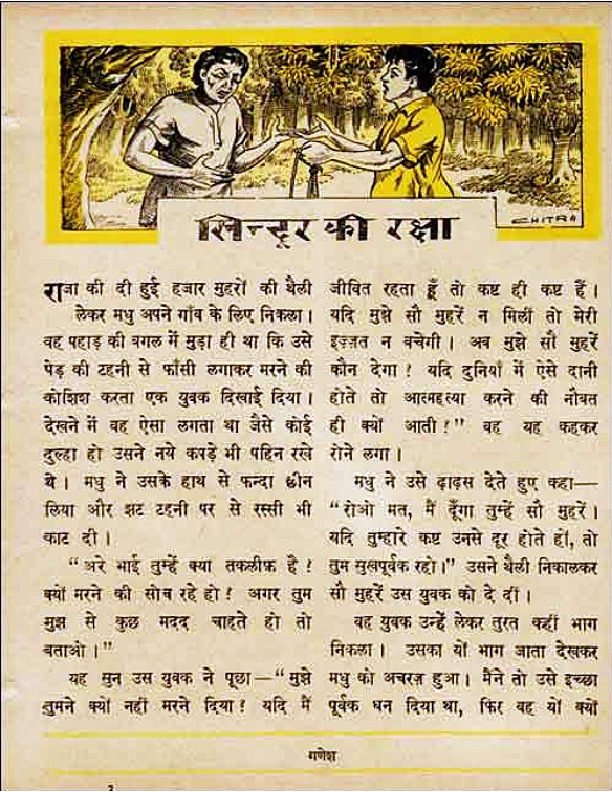 CHITRA
सिन्दूर की रक्षा
राजा की दी हुई हजार मुहरों की थैली
लेकर मधु अपने गाँव के लिए निकला।
वह पहाड़ की बगल में मुड़ा ही था कि उसे
पेड़ की टहनी से फाँसी लगाकर मरने की
कोशिश करता एक युवक दिखाई दिया।
देखने में वह ऐसा लगता था जैसे कोई
दुल्हा हो उसने नये कपड़े भी पहिन रखे
थे। मधु ने उसके हाथ से फन्दा छीन
लिया और झट टहनी पर से रस्सी भी
काट दी।
“अरे भाई तुम्हें क्या तकलीफ़ है?
क्यों मरने की सोच रहे हो? अगर तुम
मुझ से कुछ मदद चाहते हो तो
बताओ।”
यह सुन उस युवक ने पूछा—“मुझे
तुमने क्यों नहीं मरने दिया? यदि मैं
जीवित रहता हूँ तो कष्ट ही कष्ट हैं।
यदि मुझे सौ मुहरें न मिलीं तो मेरी
इज़्ज़त न बचेगी। अब मुझे सौ मुहरें
कौन देगा? यदि दुनियाँ में ऐसे दानी
होते तो आत्महत्या करने की नौबत
ही क्यों आती?” वह यह कहकर
रोने लगा।
मधु ने उसे ढ़ाढ़स देते हुए कहा—
“रोओ मत, मैं दूँगा तुम्हें सौ मुहरें।
यदि तुम्हारे कष्ट उनसे दूर होते हों, तो
तुम सुखपूर्वक रहो।” उसने थैली निकालकर
सौ मुहरें उस युवक को दे दीं।
वह युवक उन्हें लेकर तुरत कहीं भाग
निकला। उसका यों भाग जाता देखकर
मधु को अचरज़ हुआ। मैंने तो उसे इच्छा
पूर्वक धन दिया था, फिर वह यों क्यों
गणेश